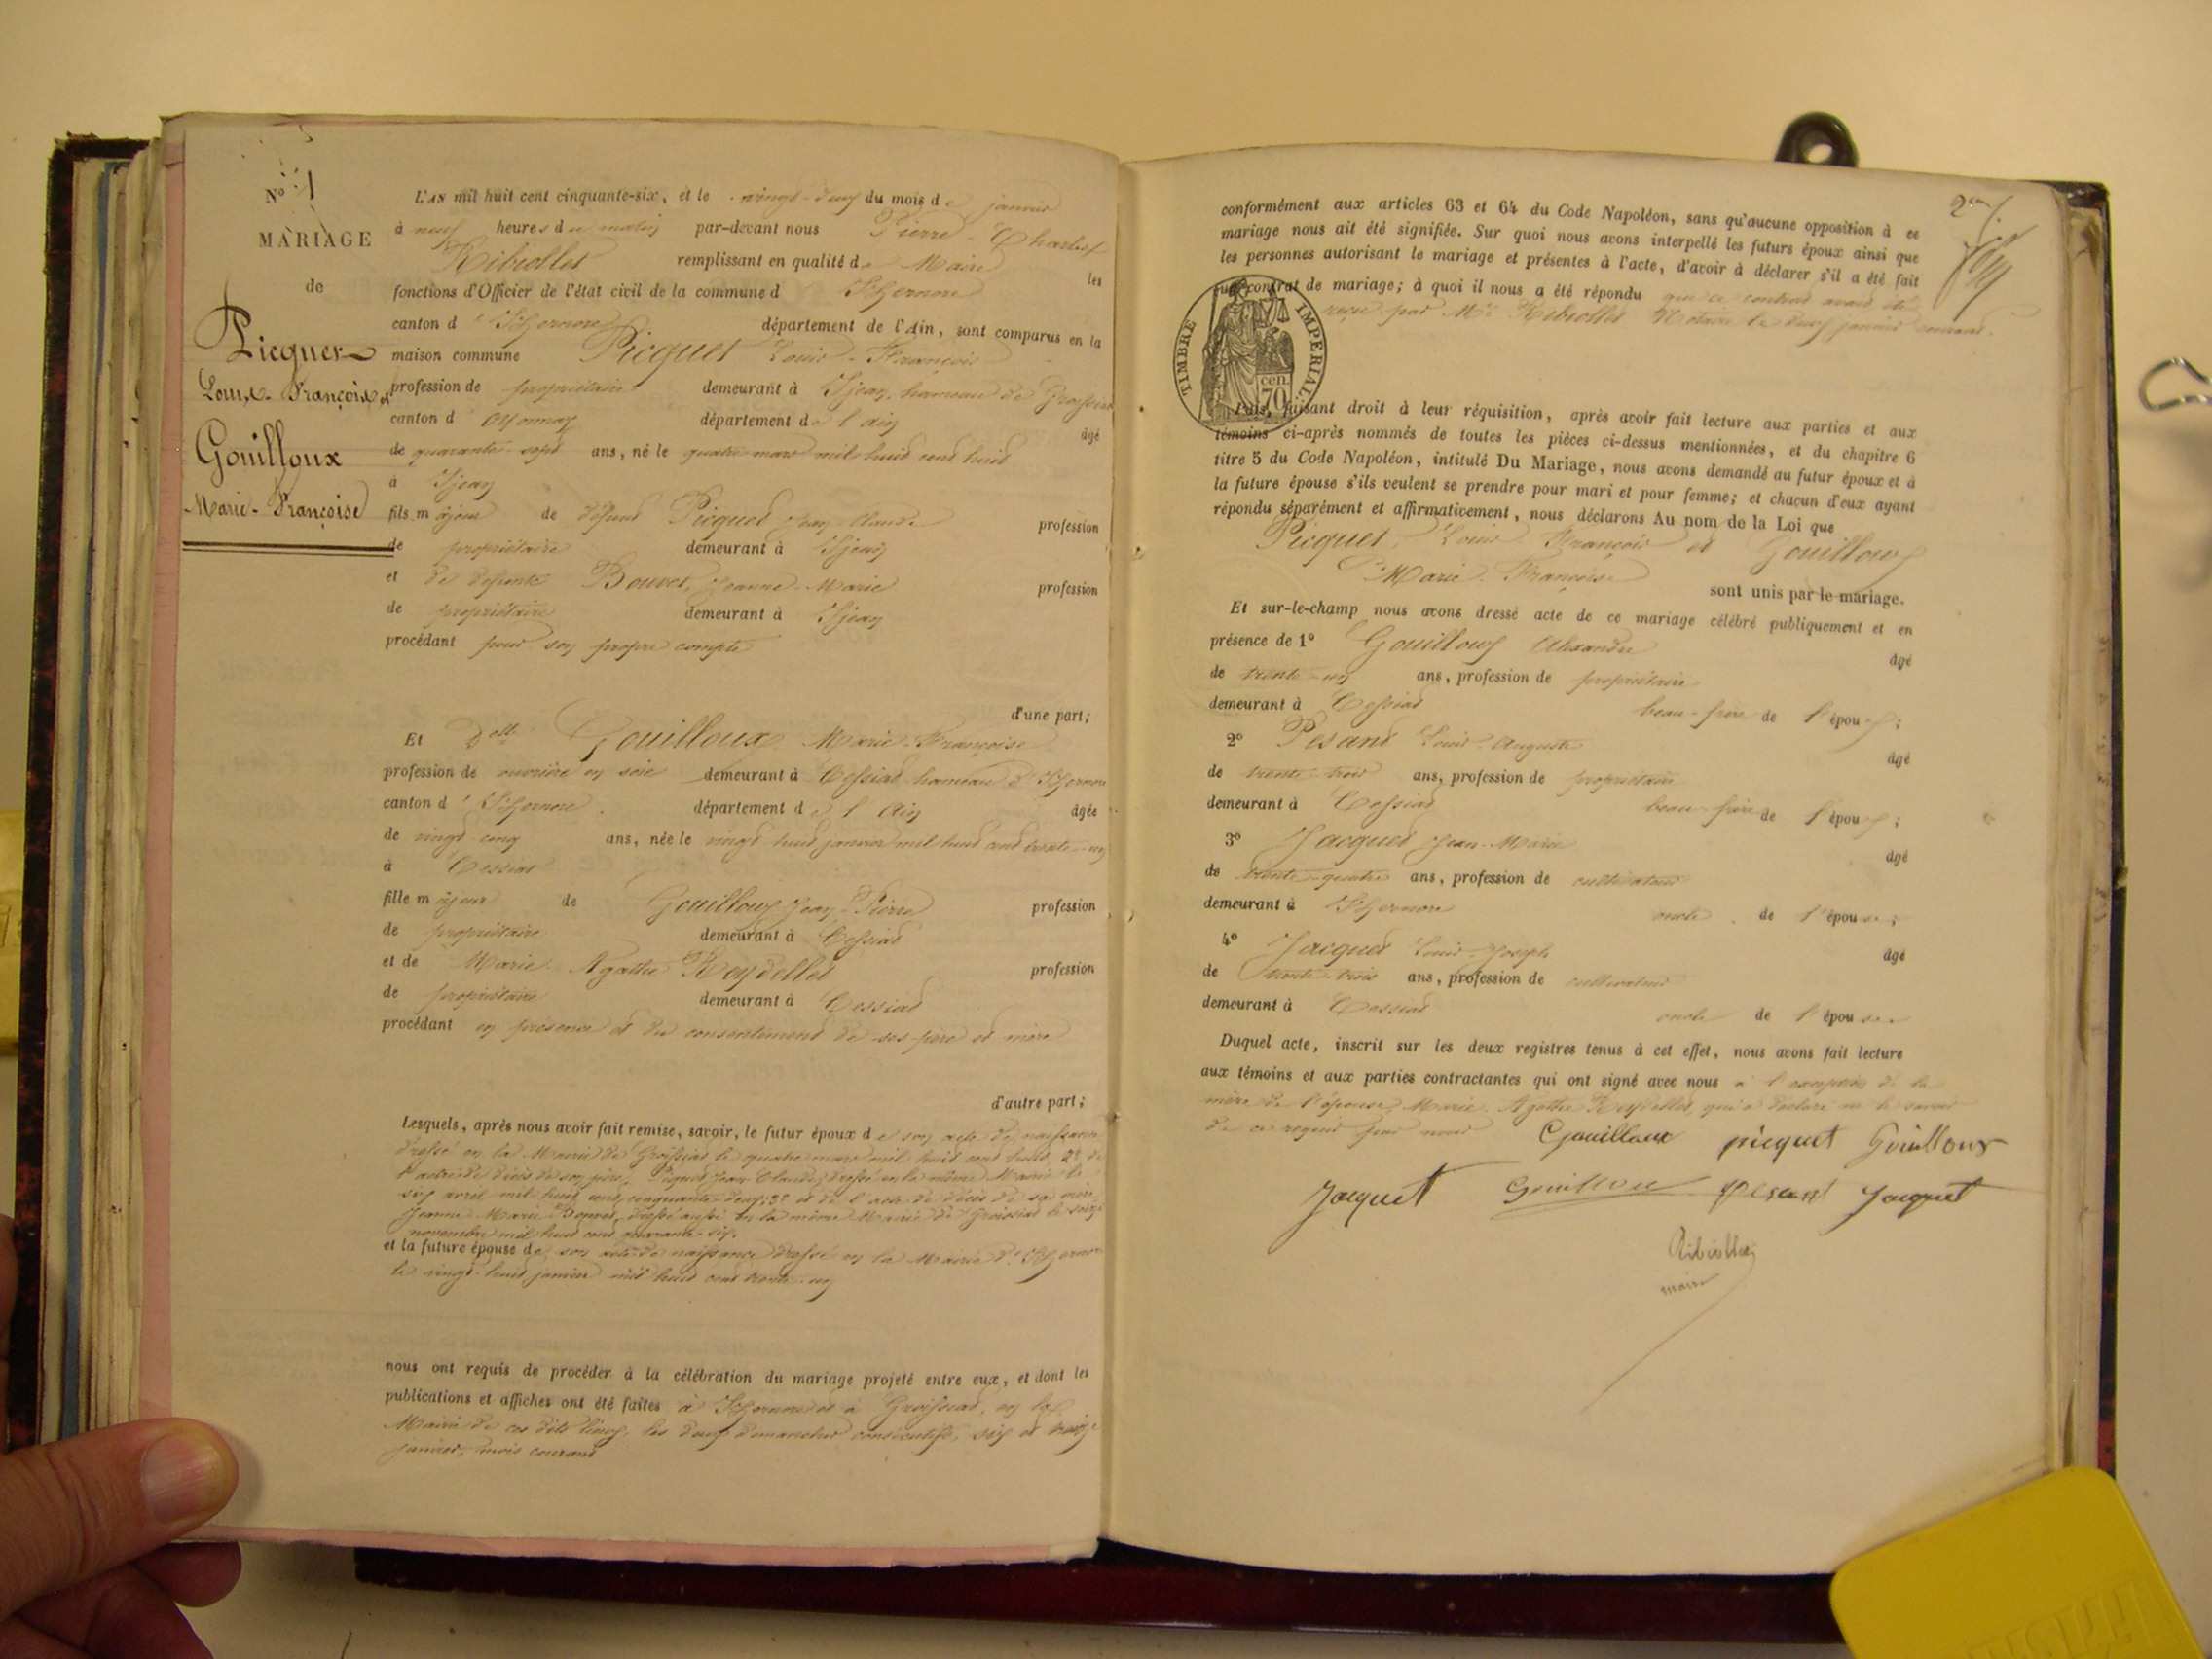 N° 1
MARIAGE
de
Picquet
Louis-François et
Gouilloux
Marie-Françoise
L'AN mil huit cent cinquante-six, et le vingt-deux du mois de janvier
à neuf heures du matin par-devant nous Pierre-Charles
Ribiollet remplissant en qualité de Maire les
fonctions d'Officier de l'état civil de la commune d'Izernore
canton d'Izernore département de l'Ain, sont comparus en la
maison commune Picquet Louis-François
profession de propriétaire demeurant à Ijean, hameau de Groissiat
canton d'Oyonnax département de l'Ain âgé
de quarante-sept ans, né le quatre mars mil huit cent huit
à Ijean
fils majeur de défunt Picquet Jean-Claude profession
de propriétaire demeurant à Ijean
et de défunte Bouvet, Jeanne-Marie profession
de propriétaire demeurant à Ijean
procédant pour son propre compte
d'une part;
Et Delle Gouilloux Marie-Françoise
profession de ouvrière en soie demeurant à Cessiat hameau d'Izernore
canton d'Izernore département de l'Ain âgée
de vingt-cinq ans, née le vingt huit janvier mil huit cent trente-un
à Cessiat
fille majeur de Gouilloux Jean-Pierre profession
de propriétaire demeurant à Cessiat
et de Marie Agathe Reydellet profession
de propriétaire demeurant à Cessiat
procédant en présence et du consentement de ses père et mère
d'autre part;
Lesquels, après nous avoir fait remise, savoir, le futur époux de son acte de naissance
dressé en la Mairie de Groissiat le quatre mars mil huit cent huit 2° de
l'acte de décès de son père, Picquet Jean Claude, dressé en la même Mairie le
six avril mil huit cent cinquante-deux; 3° et de l'acte de décès de sa mère
Jeanne Marie Bouvet, dressé aussi en la même Mairie de Groissiat le seize
novembre mil huit cent quarante-six.
et la future épouse de son acte de naissance dressé en la Mairie d'Izernore
le vingt-huit janvier mil huit cent trente-un
nous ont requis de procéder à la célébration du mariage projeté entre eux, et dont les
publications et affiches ont été faites à Izernore et à Groissiat, en la
Mairie de ces dits lieux, les deux dimanches consécutifs, six et treize
janvier, mois courant
2em
conformément aux articles 63 et 64 du Code Napoléon, sans qu'aucune opposition à ce
mariage nous ait été signifiée. Sur quoi nous avons interpellé les futurs époux ainsi que
les personnes autorisant le mariage et présentes à l'acte, d'avoir à déclarer s'il a été fait
un contrat de mariage; à quoi il nous a été répondu que ce contrat avait été
reçu par Me Ribiollet Notaire le deux janvier courant.
TIMBRE IMPERIAL
70 cen.
Puis, faisant droit à leur réquisition, après avoir fait lecture aux parties et aux
témoins ci-après nommés de toutes les pièces ci-dessus mentionnées, et du chapitre 6
titre 5 du Code Napoléon, intitulé Du Mariage, nous avons demandé au futur époux et à
la future épouse s'ils veulent se prendre pour mari et pour femme; et chacun d'eux ayant
répondu séparément et affirmativement, nous déclarons Au nom de la Loi que
Picquet, Louis François et Gouilloux
Marie-Françoise sont unis par le mariage.
Et sur-le-champ nous avons dressé acte de ce mariage célébré publiquement et en
présence de 1° Gouilloux Alexandre âgé
de trente-un ans, profession de propriétaire
demeurant à Cessiat beau-frère de l'époux;
2° Pesant Louis-Auguste âgé
de trente-trois ans, profession de propriétaire
demeurant à Cessiat beau-frère de l'époux;
3° Jacquet Jean-Marie âgé
de trente-quatre ans, profession de cultivateur
demeurant à Izernore oncle de l'épouse;
4° Jacquet Louis-Joseph âgé
de trente-trois ans, profession de cultivateur
demeurant à Cessiat oncle de l'épouse.
Duquel acte, inscrit sur les deux registres tenus à cet effet, nous avons fait lecture
aux témoins et aux parties contractantes qui ont signé avec nous à l'exception de la
mère de l'épouse, Marie Agathe Reydellet, qui a déclaré ne le savoir
de ce requis par nous Gouilloux picquet Gouilloux
Jacquet Gouilloux Pesant Jacquet
Ribiollet
maire